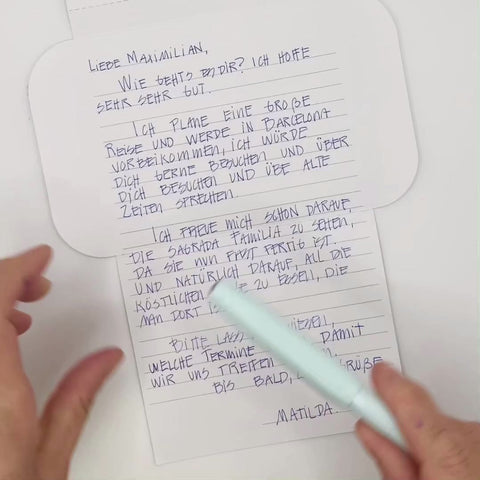 LIEBE MAXIMILIAN,
WIE GEHTS ES DIR? ICH HOFFE
SEHR SEHR GUT.
ICH PLANE EINE GROßE
REISE UND WERDE IN BARCELONA
VORBEIKOMMEN, ICH WÜRDE
DICH GERNE BESUCHEN UND ÜBER
DICH BESUCHEN UND ÜBE ALTE
ZEITEN SPRECHEN
ICH FREUE MICH SCHON DARAUF,
DIE SAGRADA FAMILIA ZU SEHEN,
DA SIE NUN FAST FERTIG IST.
UND NATÜRLICH DARAUF, ALL DIE
KÖSTLICHEN ZU ESSEN, DIE
MAN DORT
BITTE
WELCHE TERMINE DAMIT
WIR UNS TREFFEN
BIS BALD,
MATILDA